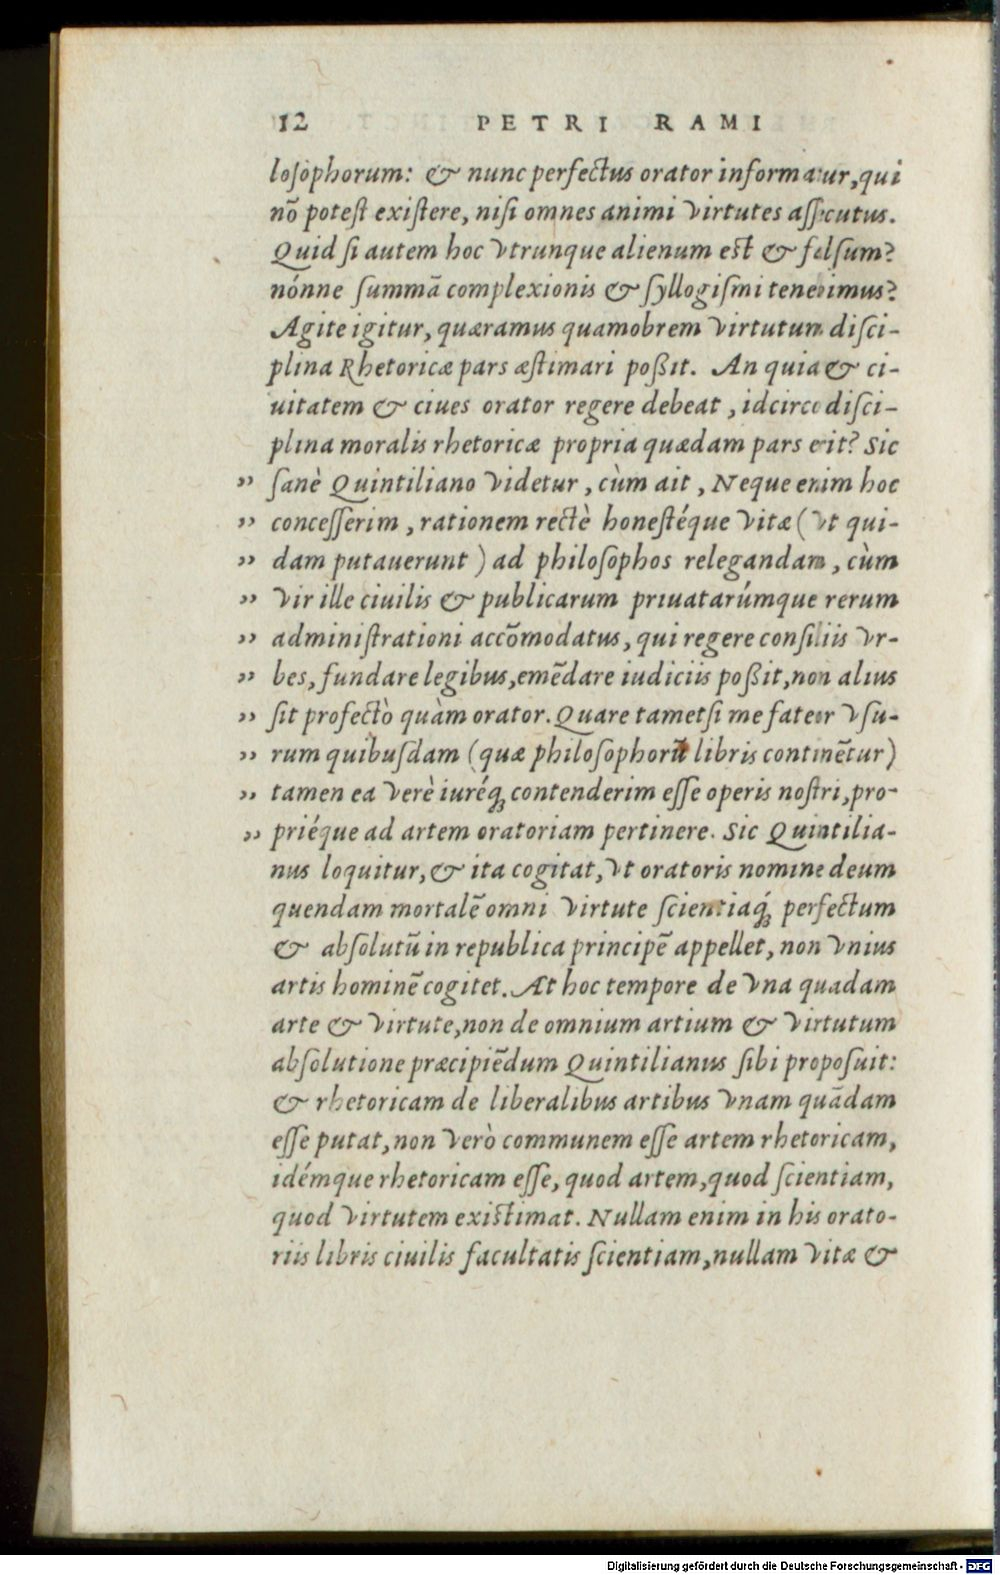 12 PETRI RAMI
losophorum: & nunc perfectus orator informatur, qui
nō potest existere, nisi omnes animi virtutes assecutus.
Quid si autem hoc vtrunque alienum est & falsum?
nónne summā complexionis & syllogismi tenebimus?
Agite igitur, quæramus quamobrem virtutum disci-
plina Rhetoricæ pars æstimari poßit. An quia & ci-
uitatem & ciues orator regere debeat, idcirco disci-
plina moralis rhetoricæ propria quædam pars erit? Sic
” sanè Quintiliano videtur, cùm ait, Neque enim hoc
” concesserim, rationem rectè honestéque vitæ (vt qui-
” dam putauerunt) ad philosophos relegandam, cùm
” vir ille ciuilis & publicarum priuatarúmque rerum
” administrationi accōmodatus, qui regere consiliis vr-
” bes, fundare legibus, emēdare iudiciis poßit, non alius
” sit profectò quàm orator. Quare tametsi me fateor vsu-
” rum quibusdam (quæ philosophorū libris continētur)
” tamen ea verè iuréq; contenderim esse operis nostri, pro-
” priéque ad artem oratoriam pertinere. Sic Quintilia-
nus loquitur, & ita cogitat, vt oratoris nomine deum
quendam mortalē omni virtute scientiaq́; perfectum
& absolutū in republica principē appellet, non vnius
artis hominē cogitet. At hoc tempore de vna quadam
arte & virtute, non de omnium artium & virtutum
absolutione præcipiēdum Quintilianus sibi proposuit:
& rhetoricam de liberalibus artibus vnam quādam
esse putat, non verò communem esse artem rhetoricam,
idémque rhetoricam esse, quod artem, quod scientiam,
quod virtutem existimat. Nullam enim in his orato-
riis libris ciuilis facultatis scientiam, nullam vitæ &
Digitalisierung gefördert durch die Deutsche Forschungsgemeinschaft - DFG